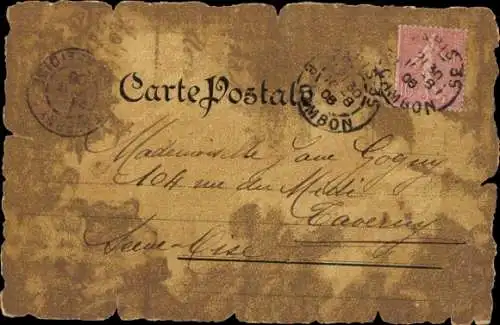 Carte Postale
Mademoiselle Jane Gogny
104 rue du Midi
Taverny
Seine-Oise
PARIS